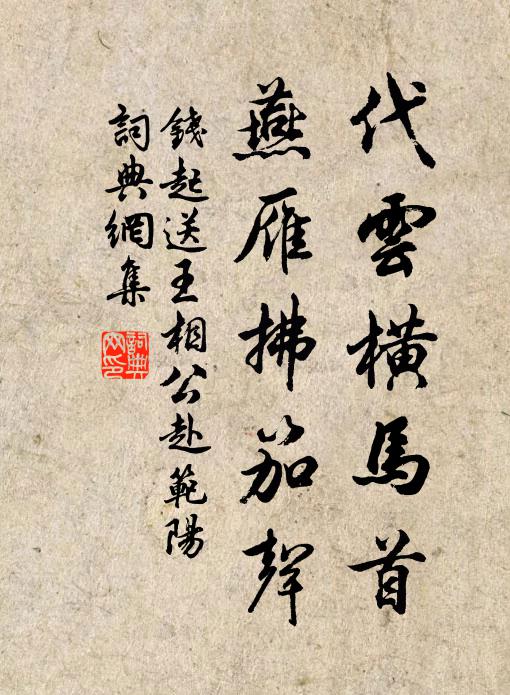 代雲橫馬首
燕雁拂笳聲
錢起送王相公赴範陽
詞典網集
詞典網印